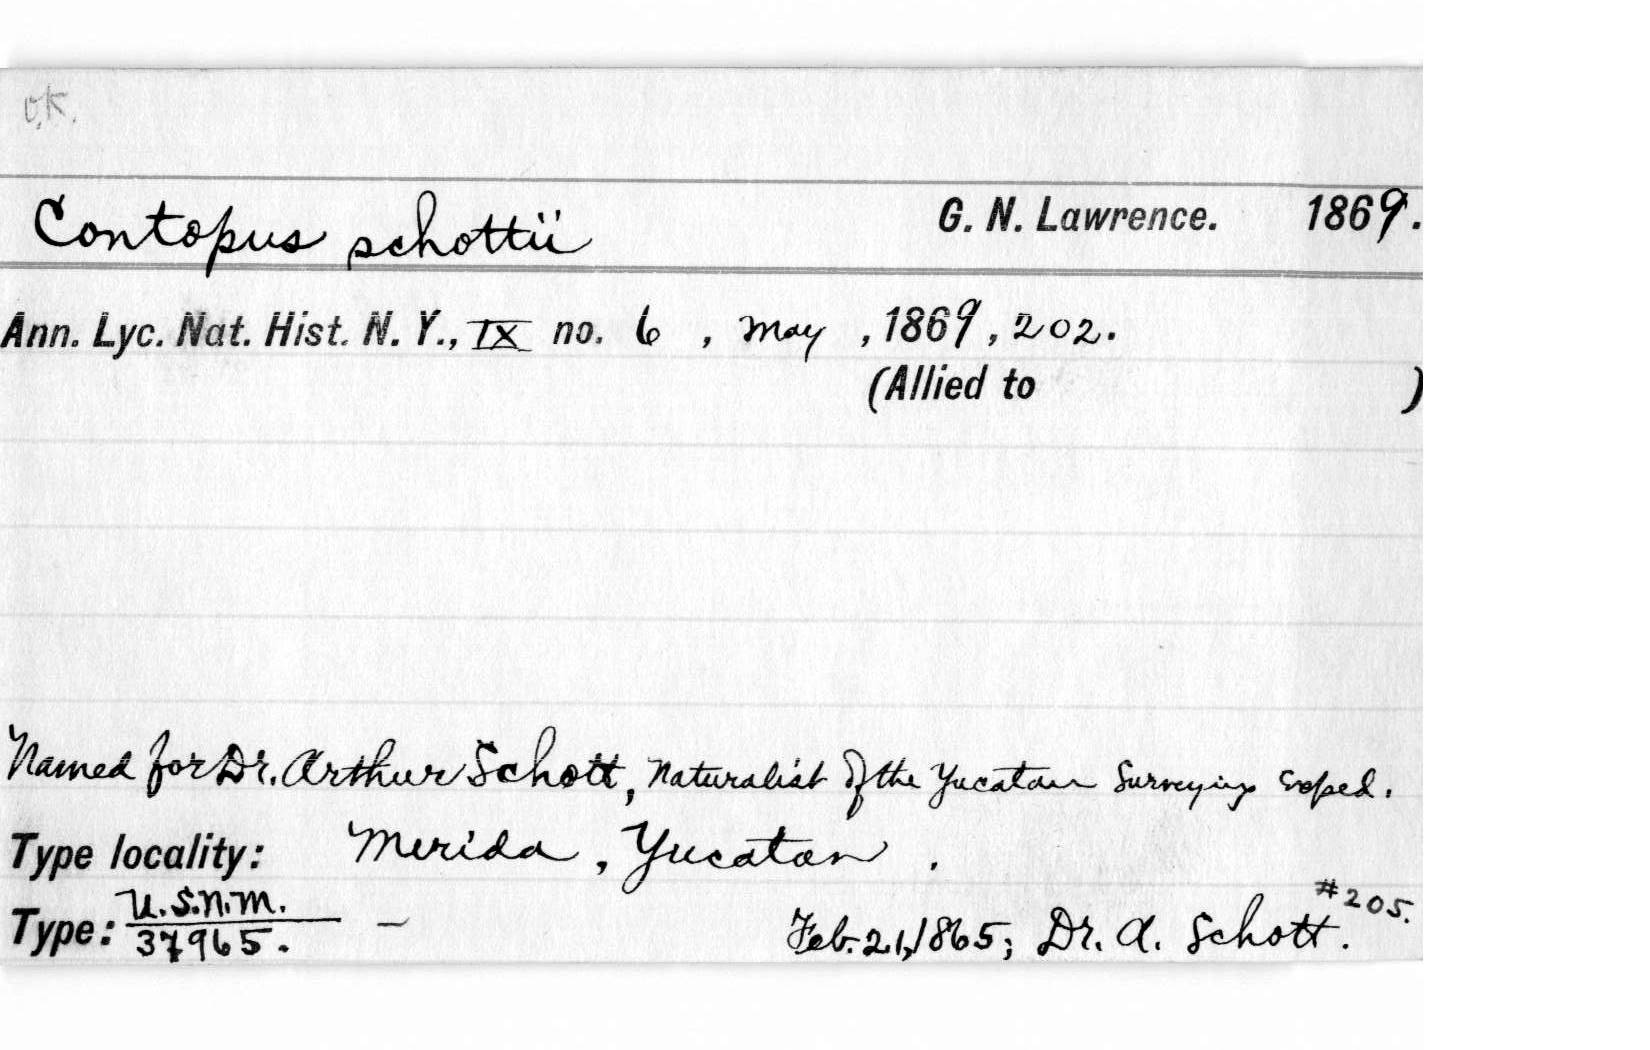 O.K.
Contopus schottii G. N. Lawrence. 1869.
Ann. Lyc. Nat. Hist. N. Y., IX no. 6 , May , 1869 , 202.
(Allied to )
Named for Dr. Arthur Schott, Naturalist of the Yucatan Surveying Exped.
Type locality: Merida, Yucatan .
#205.
Type: U.S.N.M. 37965. – Feb. 21, 1865; Dr. A. Schott.